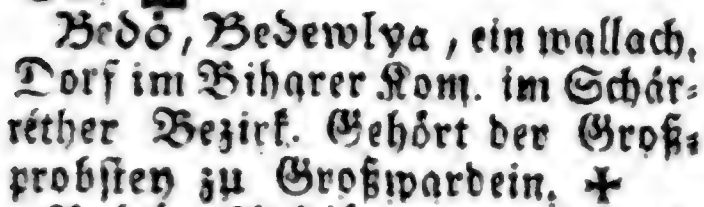 Bedö, Bedewlya, ein wallach,
Dorf im Biharer Kom. im Schár⸗
réther Bezirk. Gehört der Groß⸗
probstey zu Großwardein. ✝